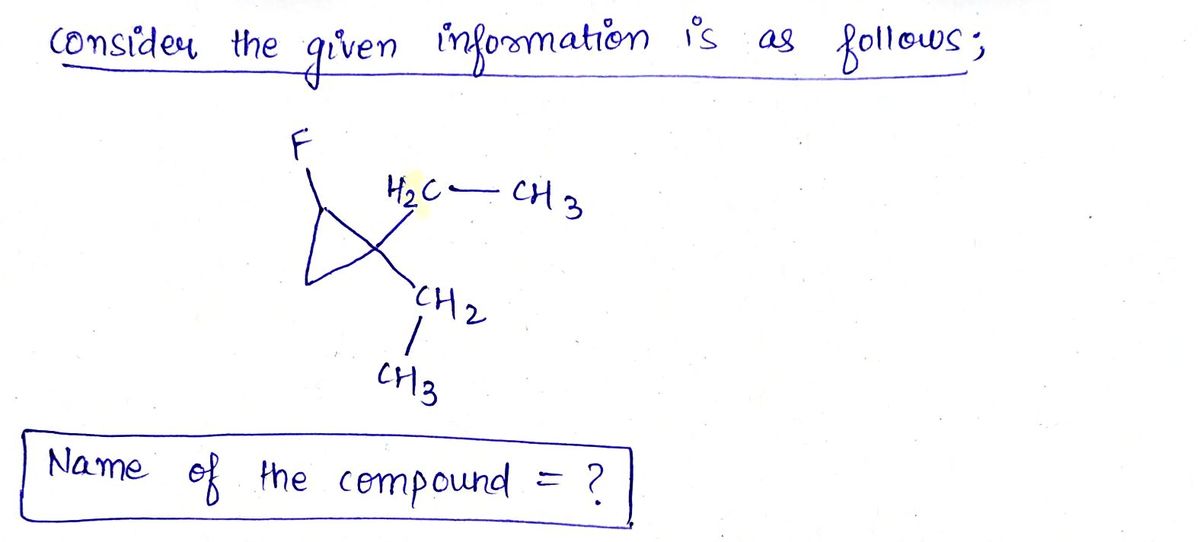 consider the given information is as follows;
F
H2C — CH3
CH2
CH3
Name of the compound = ?